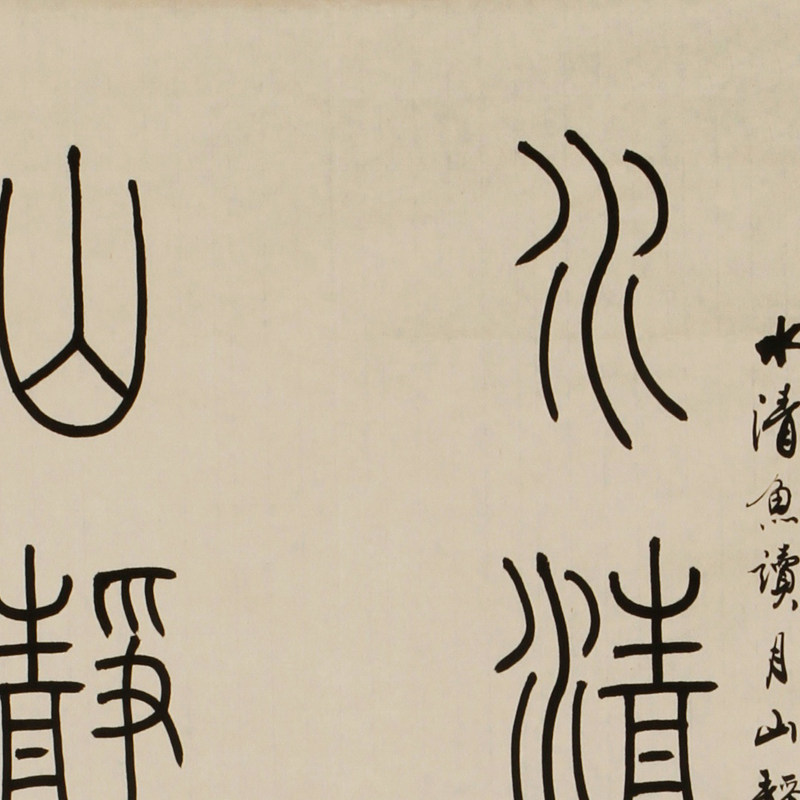 水清魚讀月山靜
水清
山靜